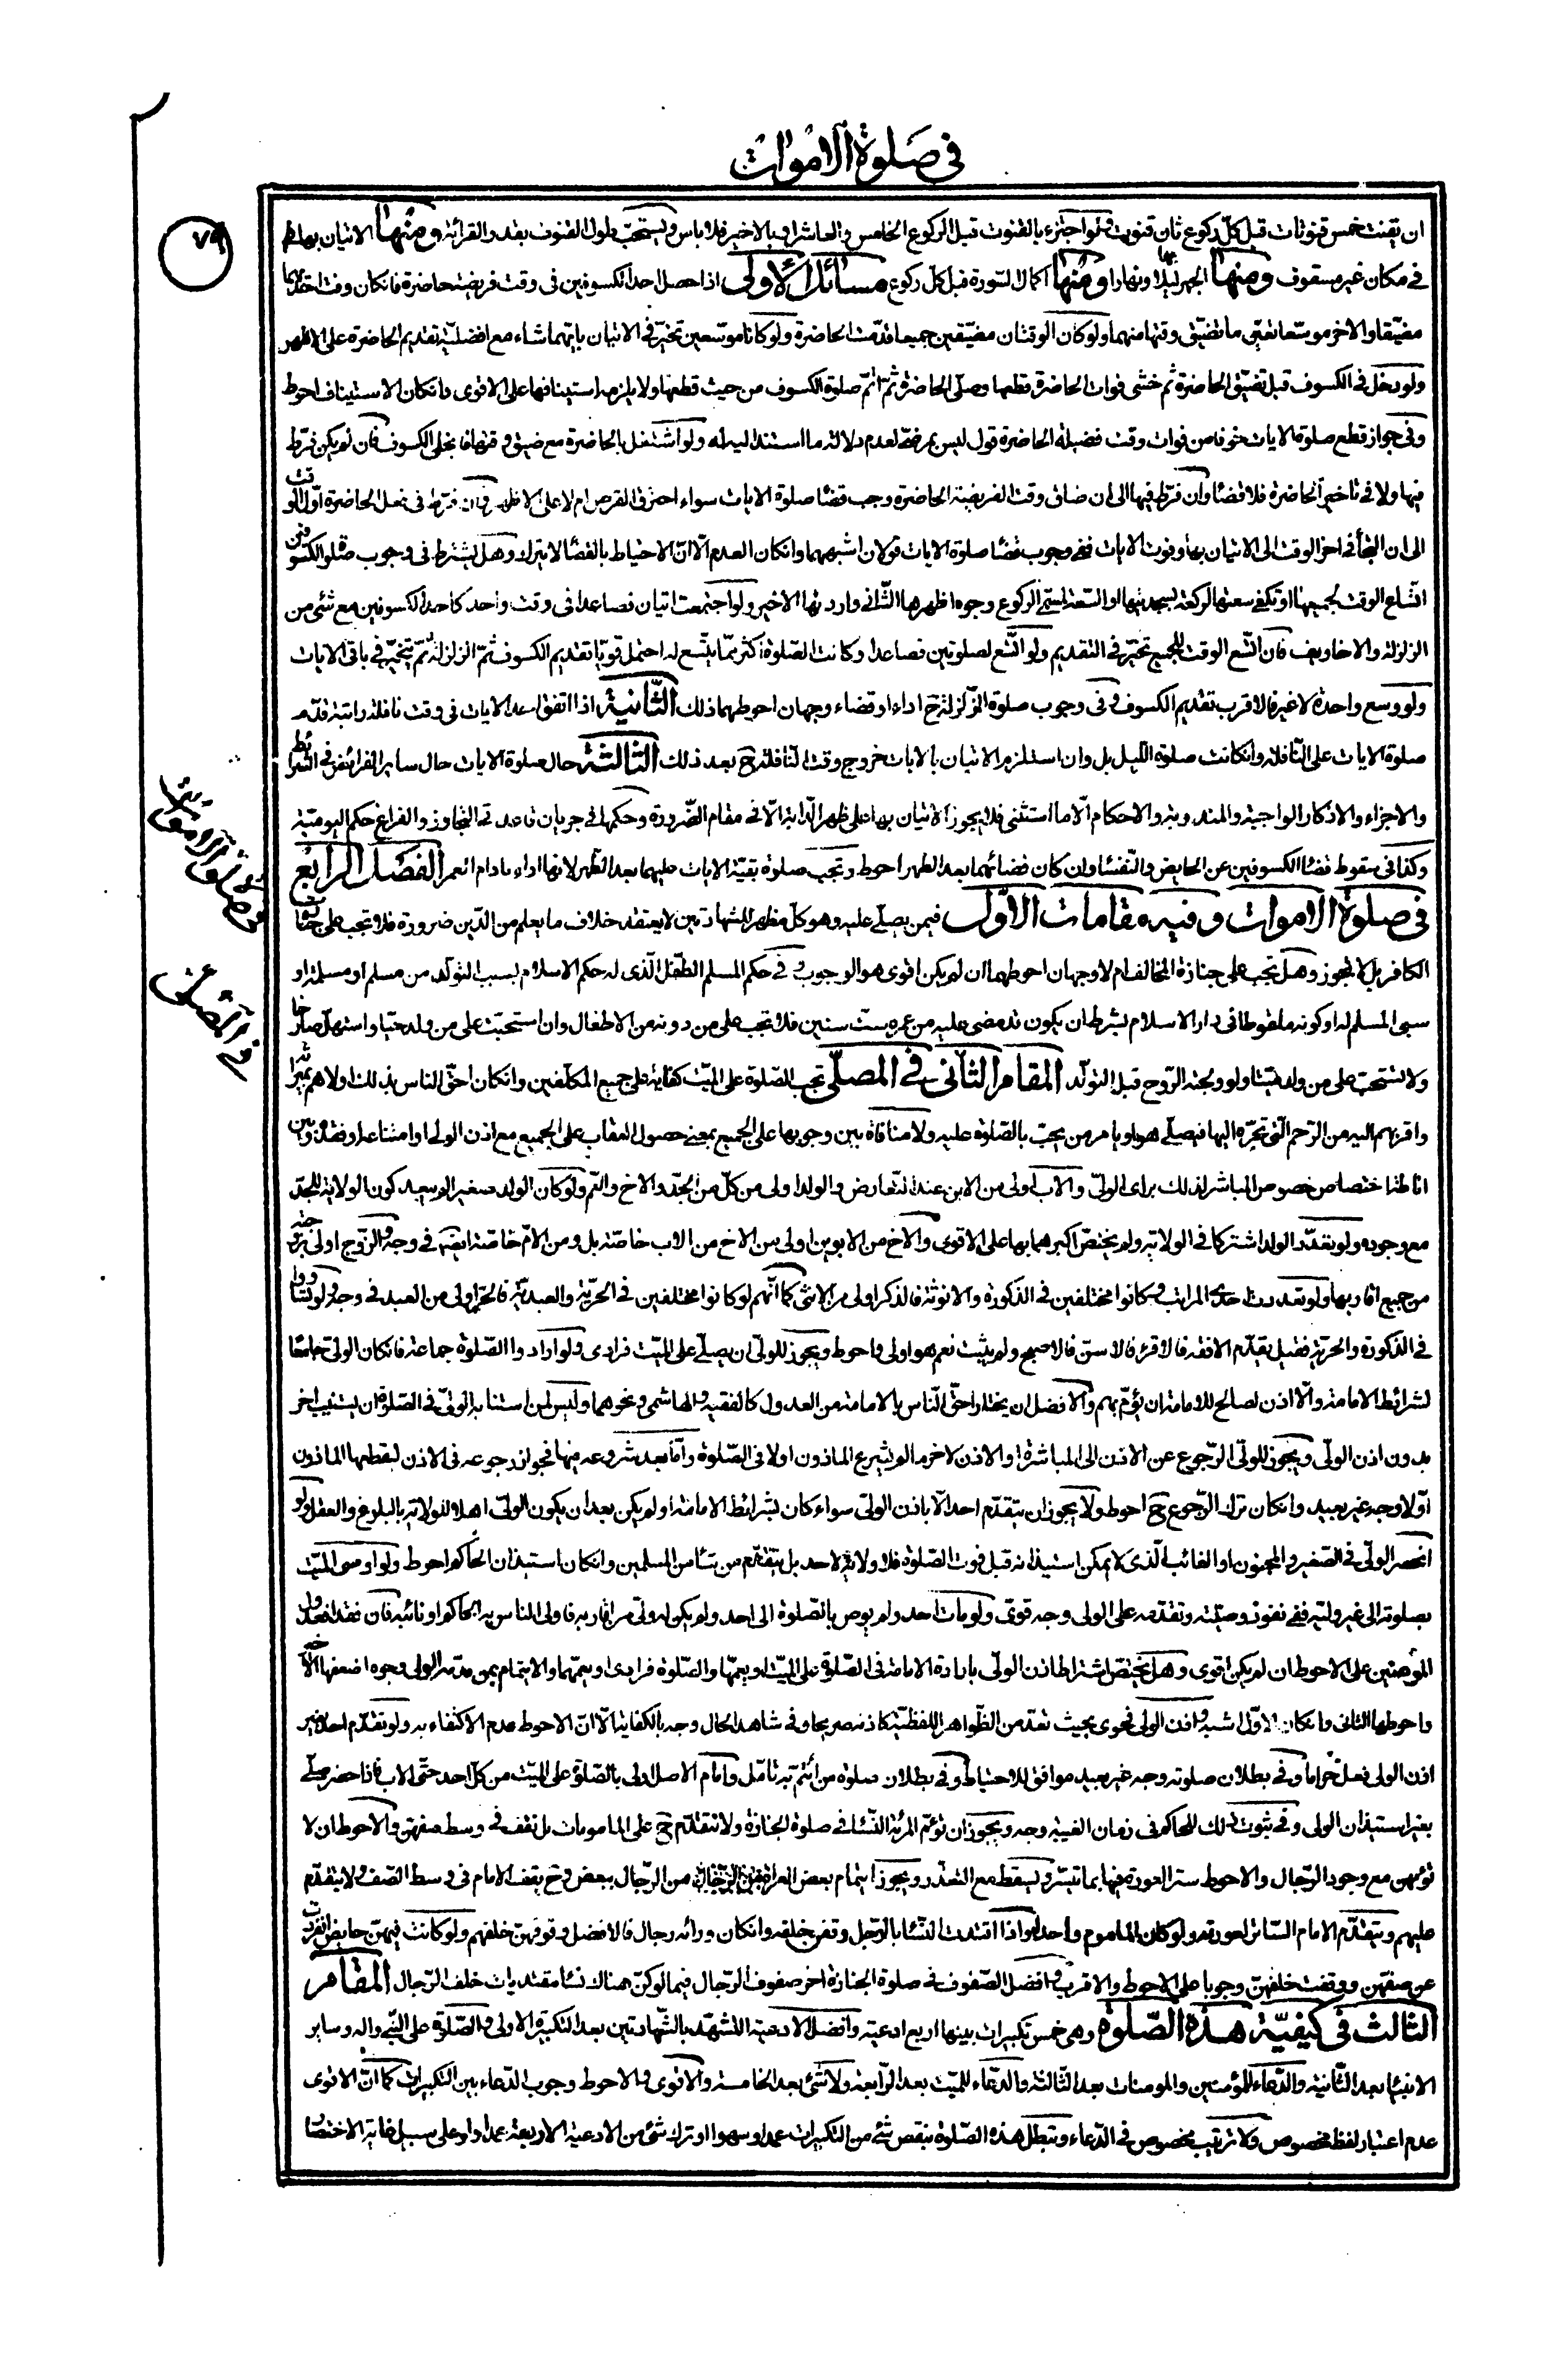 في صلوة الاموات
٧٩
ان يقنت خمس قنوتات قبل كلّ ركوع ثان قنوت ولو اجتزء بالقنوت قبل الركوع الخامس والعاشر او بالاخير فلا باس ويستحبّ طول القنوت بقدر القرائة ومنها الاتيان بها
في مكان غير مسقوف ومنها الجهر بها ليلا ونهارا ومنها اكمال السّورة قبل كلّ ركوع مسائل الأولى اذا حصل احد الكسوفين في وقت فريضة حاضرة فانكان وقت احدهما
مضيّقا والاخر موسّعا تعيّن ما تضيّق وقتها منهما ولو كان الوقتان مضيّقين جميعا قدّمت الحاضرة ولو كانا موسّعين تخيّر في الاتيان بايّهما شاء مع افضليّة تقديم الحاضرة على الاظهر
ولو دخل في الكسوف قبل تضيّق الحاضرة ثم خشى فوات الحاضرة قطعها وصلّى الحاضرة ثمّ اتمّ صلوة الكسوف من حيث قطعها ولا يلزمه استينافها على الاقوى وانكان الاستيناف احوط
وفى جواز قطع صلوة الايات خوفا من فوات وقت فضيلة الحاضرة قول ليس بمرضىّ لعدم دلالة ما استند اليه له ولو اشتغل بالحاضرة مع ضيق وقتها فانجلى الكسوف فان لم يكن فرّط
فيها ولا في تاخير الحاضرة فلا قضاء وان فرّط فيها الى ان ضاق وقت الفريضة الحاضرة وجب قضاء صلوة الايات سواء احترق القرص ام لا على الاظهر وان فرّط في فعل الحاضرة اوّل الوقت
الى ان التجأ في اخر الوقت الى الاتيان بها وفوت الايات ففى وجوب قضاء صلوة الايات قولان اشبههما وانكان العدم الّا انّ الاحتياط بالقضاء لا يترك وهل يشترط في وجوب صلوة الكسوفين
اتّساع الوقت لجميعها او تكفى سعتها لركعة بسجدتيها او السّعة لمسمّى الركوع وجوه اظهرها الثّاني واردئها الاخير ولو اجتمعت ايتان فصاعدا في وقت واحد كاحد الكسوفين مع شئ من
الزلزلة والاخاويف فان اتّسع الوقت للجميع تخيّر في التقديم ولو اتّسع لصلوتين فصاعدا وكانت الصّلوة اكثر ممّا يتّسع له احتمل قويّا تقديم الكسوف ثمّ الزلزلة ثمّ يتخيّر في باقي الايات
ولو وسع واحدة لا غير فالاقرب تقديم الكسوف وفى وجوب صلوة الزّلزلة ح اداء او قضاء وجهان احوطهما ذلك الثّانية اذا اتفق احد الايات في وقت نافلة راتبة قدّم
صلوة الايات على النّافلة وانكانت صلوة اللّيل بل وان استلزم الاتيان بالايات خروج وقت النّافلة ح بعد ذلك الثالثة حال صلوة الايات حال ساير الفرائض في الشرائط
والاجزاء والاذكار الواجبة والمندوبة والاحكام الّا ما استثنى فلا يجوز الاتيان بها على ظهر الدّابة الّا في مقام الضّرورة وحكمها في جريان قاعدتى التجاوز والفراغ حكم اليوميّة
وكذا في سقوط قضاء الكسوفين عن الحايض والنّفساء وان كان قضائهما بعد الطهر احوط وتجب صلوة بقيّة الايات عليهما بعد الطّهر لانها اداء مادام العمر الفصل الرابع
في صلوة الاموات وفيه مقامات الاوّل فيمن يصلّى عليه وهو كلّ مظهر للشهادتين لا يعتقد خلاف ما يعلم من الدّين ضرورة فلا تجب على جنازة
الكافر بل لا يجوز وهل تجب على جنازة المخالف ام لا وجهان احوطهما ان لم يكن اقوى هو الوجوب وفى حكم المسلم الطّفل الّذى له حكم الاسلام بسبب التولّد من مسلم او مسلمة او
سبى المسلم له او كونه ملقوطا في دار الاسلام بشرط ان يكون قد مضى عليه من عمره ستّ سنين فلا تجب على من دونه من الاطفال وان استحبّت على من ولد حيّا واستهلّ صارخا
ولا تستحبّ على من ولد ميّتا ولو ولجته الرّوح قبل التولّد المقام الثّانى في المصلّى تجب الصّلوة على الميّت كفاية على جميع المكلّفين وانكان احقّ الناس بذلك اولاهم بميراثه
واقربهم اليه من الرّحم الّتى تجرّه اليها فيصلّى هو او يامر من يحبّ بالصّلوة عليه ولا منافاة بين وجوبها على الجميع بمعنى حصول العقاب على الجميع مع اذن الولى او امتناعه او فقده وبين
اناطة اختصاص خصوص المباشر لذلك براى الولىّ والاب اولى من الابن عند التّعارض والولد اولى من كلّ من الجدّ والاخ والعّم ولو كان الولد صغيرا لم يبعد كون الولاية للجدّ
مع وجوده ولو تعدّد الولد اشتركا في الولاية ولم يختصّ اكبرهما بها على الاقوى والاخ من الابوين اولى من الاخ من الاب خاصّة بل ومن الامّ خاصّة ايضا في وجه والزّوج اولى بزوجته
من جميع اقاربها ولو تعدّدت احدى المراتب وكانوا مختلفين في الذّكورة والانوثة فالذكر اولى من الانثى كما انّهم لو كانوا مختلفين في الحريّة والعبديّة فالحرّ اولى من العبد في وجه ولو تساووا
في الذّكورة والحرية فقيل يقدّم الافقه فالاقرء فالاسنّ فالاصبح ولم يثبت نعم هو اولى واحوط ويجوز للولىّ ان يصلّى على الميّت فرادى ولو ارادوا الصّلوة جماعة فانكان الولىّ جامعا
لشرائط الامامة والّا اذن لصالح للامامة ان يؤمّ بهم والافضل ان يختار احقّ النّاس بالامامة من العدول كالفقيه والهاشمى ونحوهما وليس لمن استنابه الولىّ في الصّلوة ان يستنيب اخر
بدون اذن الولّى ويجوز للولىّ الرّجوع عن الاذن الى المباشرة او الاذن لاخر ما لم يشرع الماذون اولا في الصّلوة وامّا بعد شروعه فيها فجواز رجوعه في الاذن ليقطعها الماذون
اوّلا وجه غير بعيد وانكان ترك الرّجوع ح احوط ولا يجوز ان يتقدّم احد الّا باذن الولىّ سواء كان بشرائط الامامة او لم يكن بعد ان يكون الولىّ اهلا للولاية بالبلوغ والعقل ولو
انحصر الولىّ في الصّغير والمجنون او الغائب الّذى لا يمكن استيذانه قبل فوت الصّلوة فلا ولاية لاحد بل يتقدّم من شاء من المسلمين وانكان استيذان الحاكم احوط ولو اوصى الميّت
بصلوته الى غير وليّه ففى نفوذ وصيّته وتقدّمه على الولى وجه قوىّ ولو مات احد ولم يوص بالصّلوة الى احد ولم يكن له ولىّ من اقاربه فاولى الناس به الحاكم او نائبه فان فقد فعدول
المؤمنين على الاحوط ان لم يكن اقوى وهل يختصّ اشتراط اذن الولّى بارادة الامامة في الصّلوة على الميّت او يعمّها والصّلوة فرادى او يعمّهما والايتمام بمن قدّمه الولى وجوه اضعفها الاخير
واحوطها الثانى وانكان الاوّل اشبه واذن الولى فحوى بحيث تعدّ من الظّواهر اللفظيّة كاذنه صريحا وفى شاهد الحال وجه بالكفاية الّا انّ الاحوط عدم الاكتفاء به ولو تقدّم احد بغير
اذن الولى فعل حراما وفى بطلان صلوته وجه غير بعيد موافق للاحتياط وفى بطلان صلوة من ائتمّ به تامّل وامام الاصل اولى بالصّلوة على الميّت من كلّ احد حتّى الاب فاذا حضر صلّى
بغير استيذان الولى وفى ثبوت ذلك للحاكم في زمان الغيبة وجه ويجوز ان تؤمّ المرئة النّساء في صلوة الجنازة ولا تتقدّم ح على المامومات بل تقف في وسط صفهنّ والاحوط ان لا
تؤمهن مع وجود الرّجال والاحوط ستر العورة فيها بما تيسّر ويسقط مع التعذّر ويجوز ايتمام بعض العراة من الرّجال ببعض وح يقف الامام في وسط الصّف ولا يتقدّم
عليهم ويتقدّم الامام السّاتر لعورته ولو كان الماموم واحدا واذا اقتدت النّساء بالرّجل وقفن خلفه وانكان ورائه رجال فالافضل وقوفهنّ خلفهم ولو كانت فيهنّ حايض انفردت
عن صفهّن ووقفت خلفهنّ وجوبا على الاحوط والاقرب وافضل الصّفوف في صلوة الجنازة اخر صفوف الرّجال فيما لو كنّ هناك نساء مقتديات خلف الرّجال المقام
الثالث في كيفيّة هذه الصّلوة وهى خمس تكبيرات بينها اربع ادعية وافضل الادعية التّشهّد بالشّهادتين بعد التكبيرة الاولى والصّلوة على النّبى واله وساير
الانبياء بعد الثّانية والدّعاء للمؤمنين والمومنات بعد الثّالثة والدّعاء للميّت بعد الرّابعة ولا شئ بعد الخامسة والاقوى والاحوط وجوب الدّعاء بين التكبيرات كما انّ الاقوى
عدم اعتبار لفظ مخصوص ولا ترتيب مخصوص في الدّعاء وتبطل هذه الصّلوة بنقص شئ من التكبيرات عمدا وسهوا او ترك شئ من الادعية الاربعة عمدا ولو على سبيل غاية الاختصار
في صلوة الاموات
في المصلّى